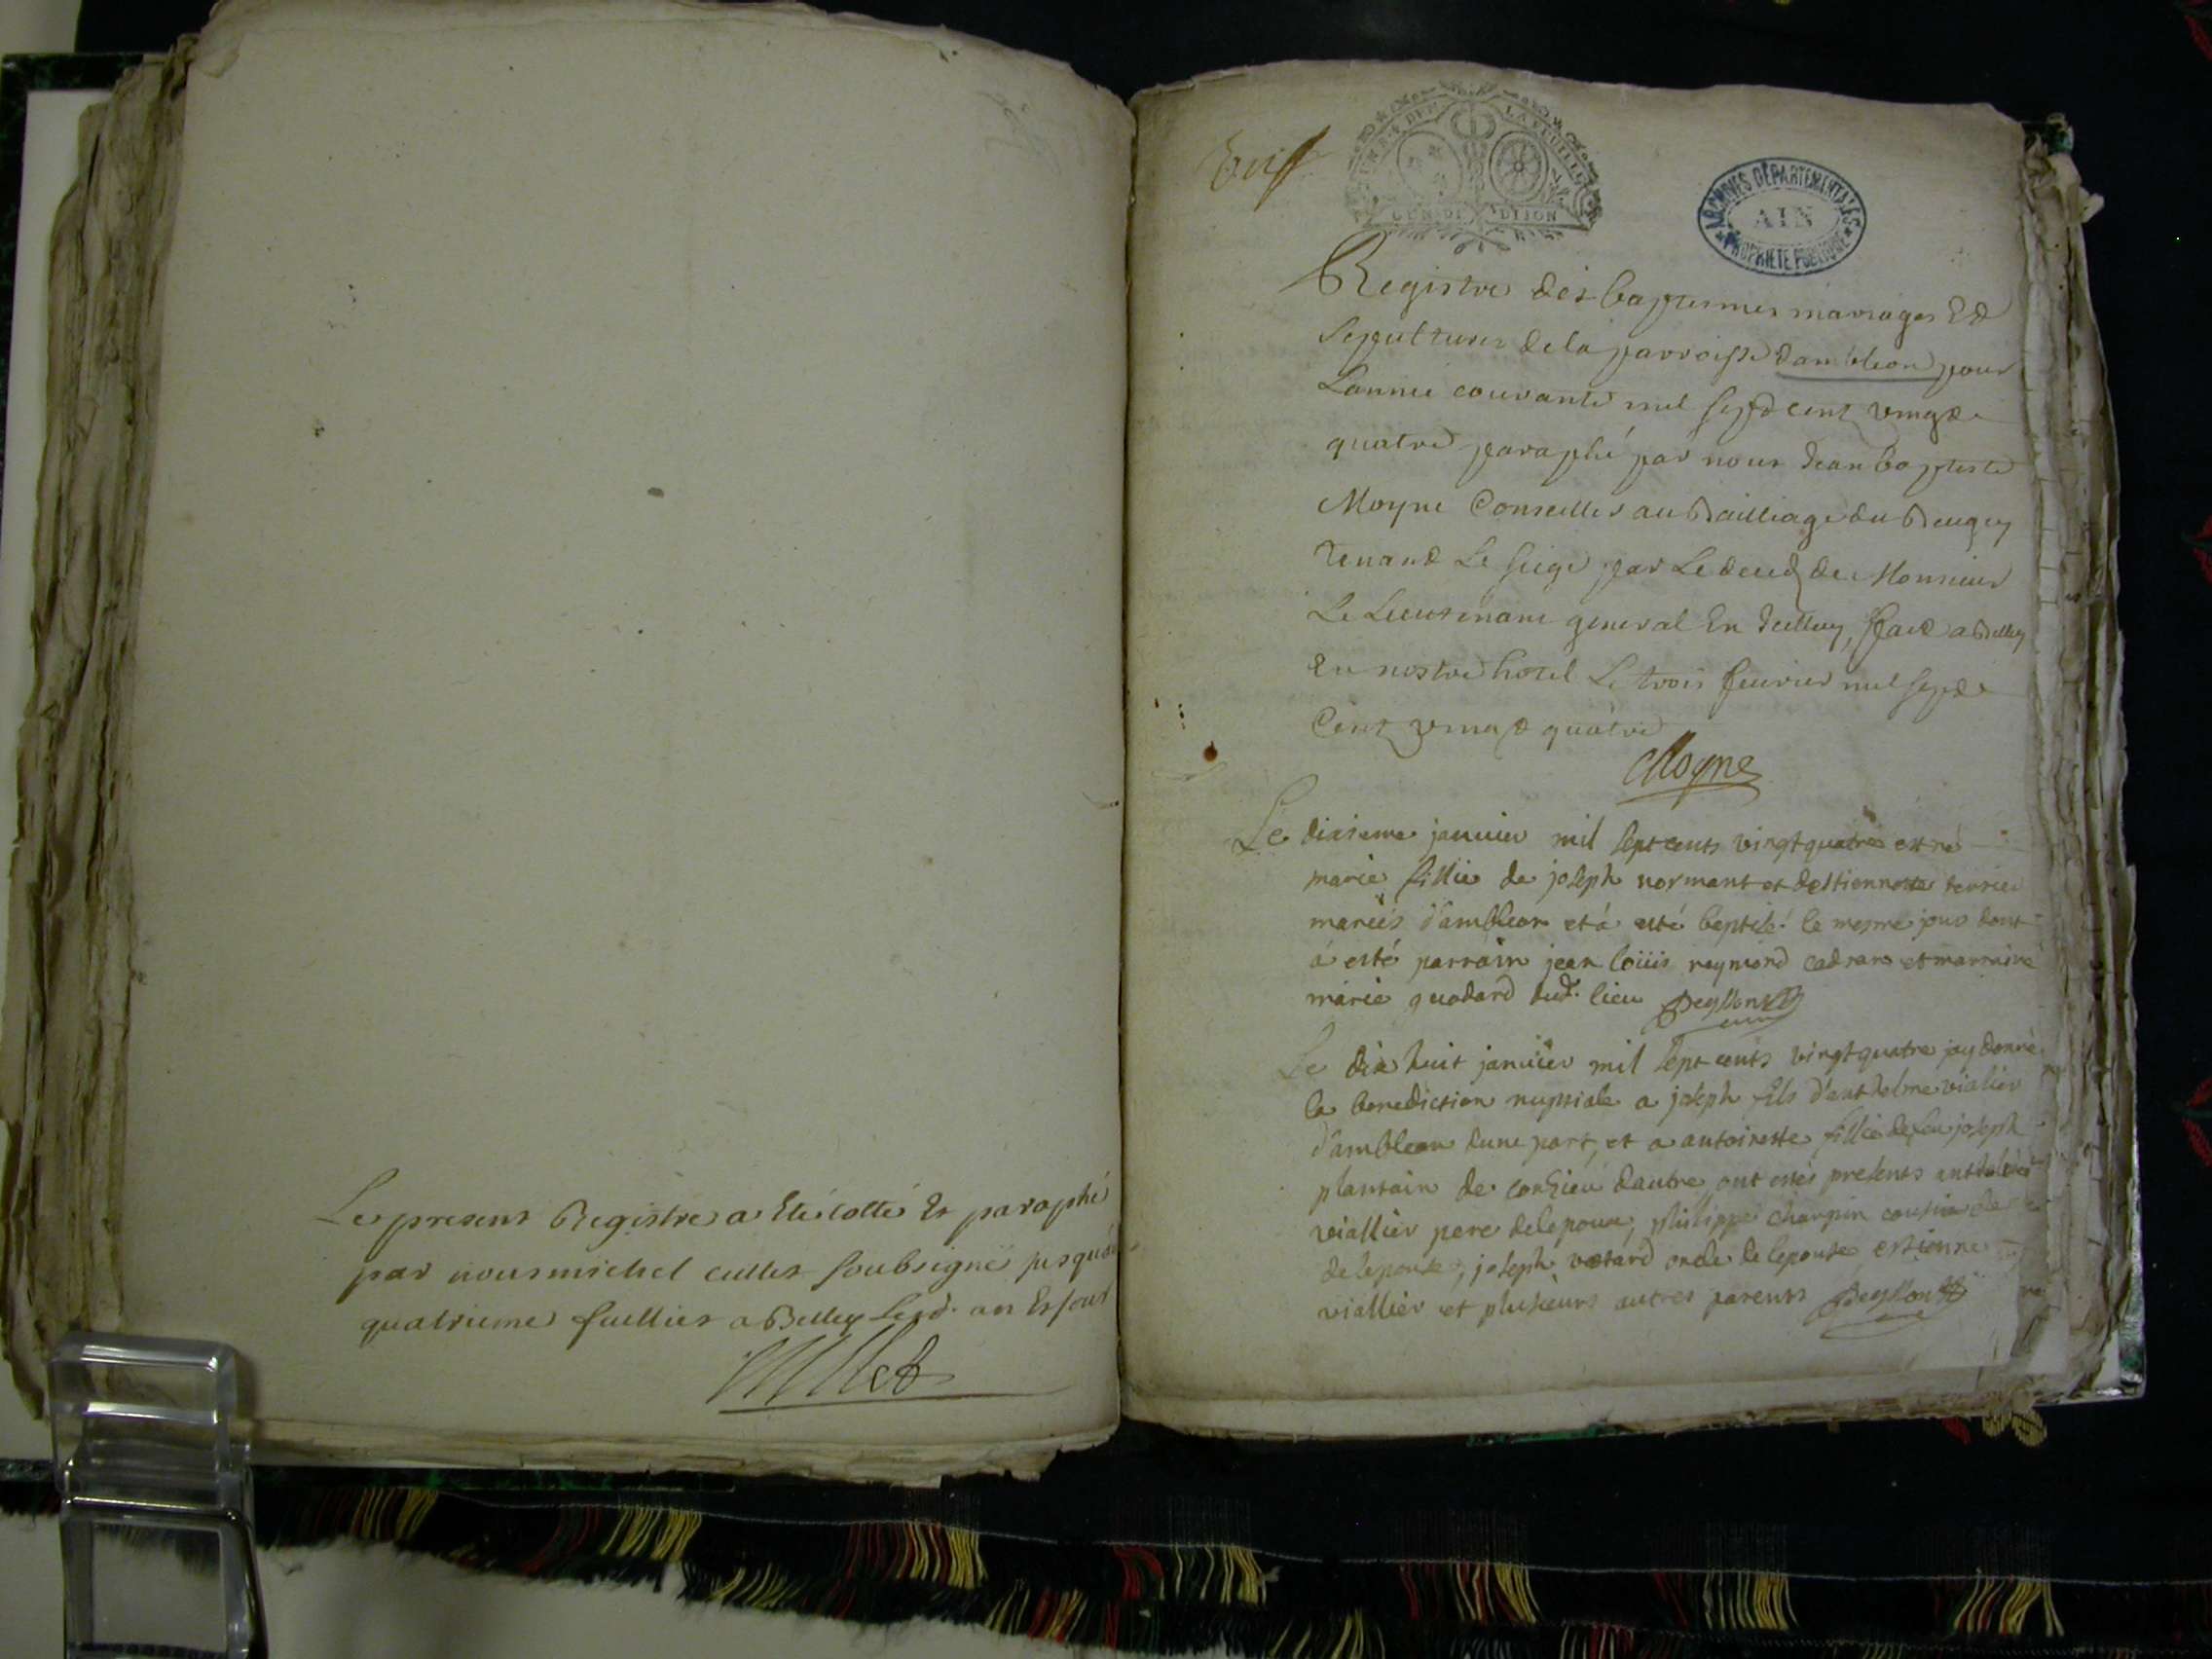 Le present Registre a Eté cotté Et paraphé
par nous michel cullet soubsigné jusquau
quatrieme fuelliet a Belley Lesd. an Et jour
Cullet
GEN DE DIJON
ARCHIVES DÉPARTEMENTALES
AIN
PROPRIÉTÉ PUBLIQUE
Registre des baptesmes mariages Et
Sepultures de la parroisse dambleon pour
Lannée courante mil sept cent vingt
quatre paraphé par nous Jean baptiste
Moyne Conseiller au Bailliage du Beugey
tenant Le siege par Le deced de Monsieur
Le Lieutenant general En Icelluy, fait a Belley
En nostre hotel Le trois feuvrier mil sept
Cent vingt quatre
Moyne
Le dixieme janvier mil sept cents vingt quatre est né
marie fillie de joseph normant et destiennette terrier
mariés d'ambleon et á esté baptisé le mesme jour dont
á esté parrain jean loüis reymond et marraine
marie godard dud. lieu
Le dix huit janvier mil sept cents vingt quatre jay donné
la benediction nuptiale a joseph fils d'anthelme viallier
d'ambleon dune part, et a antoinette fillie de feu joseph
plantain de conzieu dautre, ont estés presents anthelme
viallier pere de lepoux, philippe charpin cousin
de lepouse, joseph oncle de lepouse, estienne
viallier et plusieurs autres parents